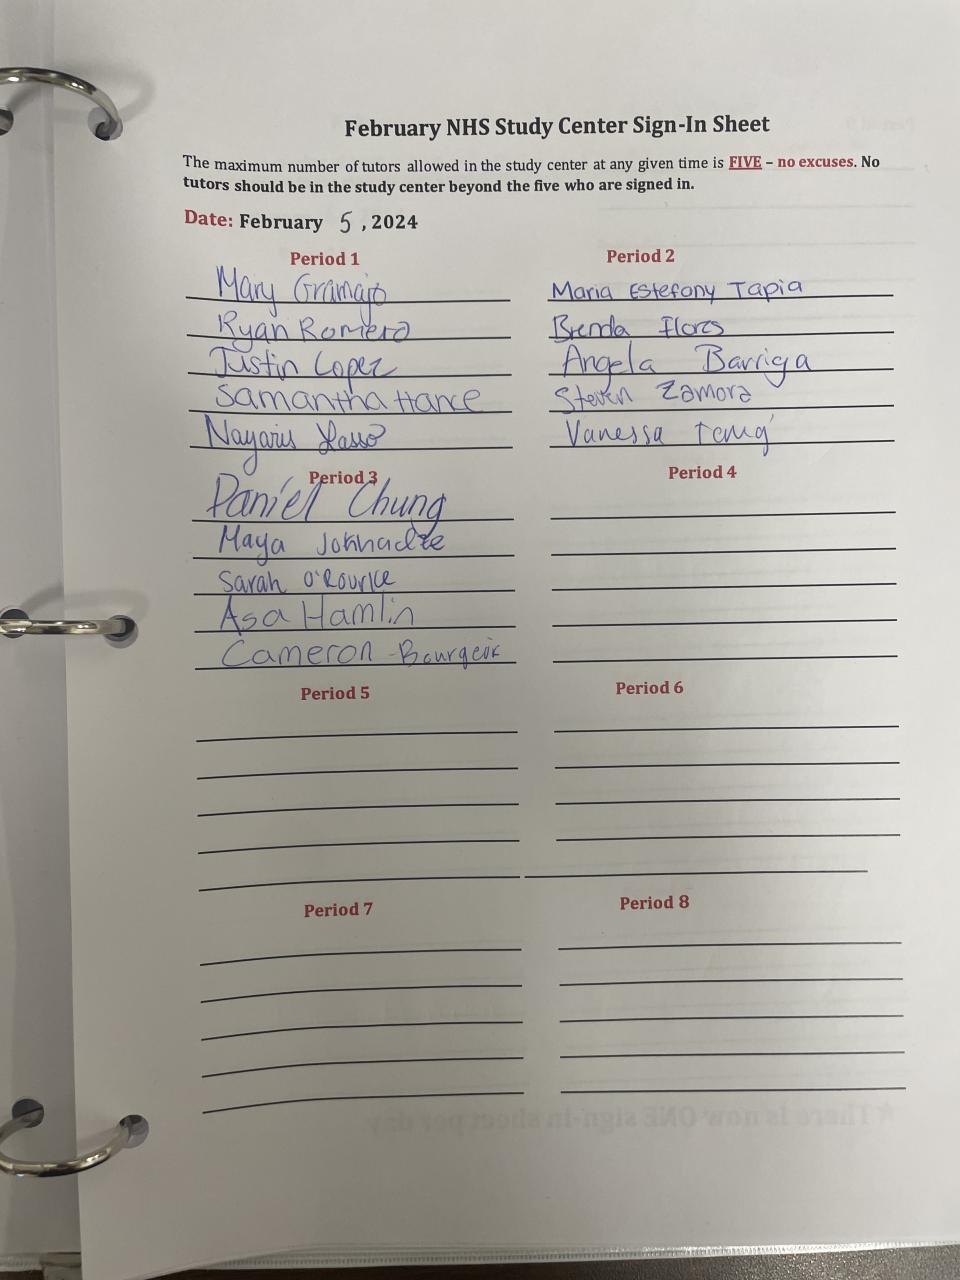 February NHS Study Center Sign-In Sheet
The maximum number of tutors allowed in the study center at any given time is FIVE – no excuses. No
tutors should be in the study center beyond the five who are signed in.
Date: February 5, 2024
Period 1
Mary Gramajo
Ryan Romero
Justin Lopez
Samantha Hance
Nayaris Lasso
Period 2
Maria Estefony Tapia
Brenda Flores
Angela Barriga
Steven Zamora
Vanessa
Period 3
Daniel Chung
Maya
Sarah O'Rourke
Asa Hamlin
Cameron Bourgeois
Period 4
Period 5
Period 6
Period 7
Period 8